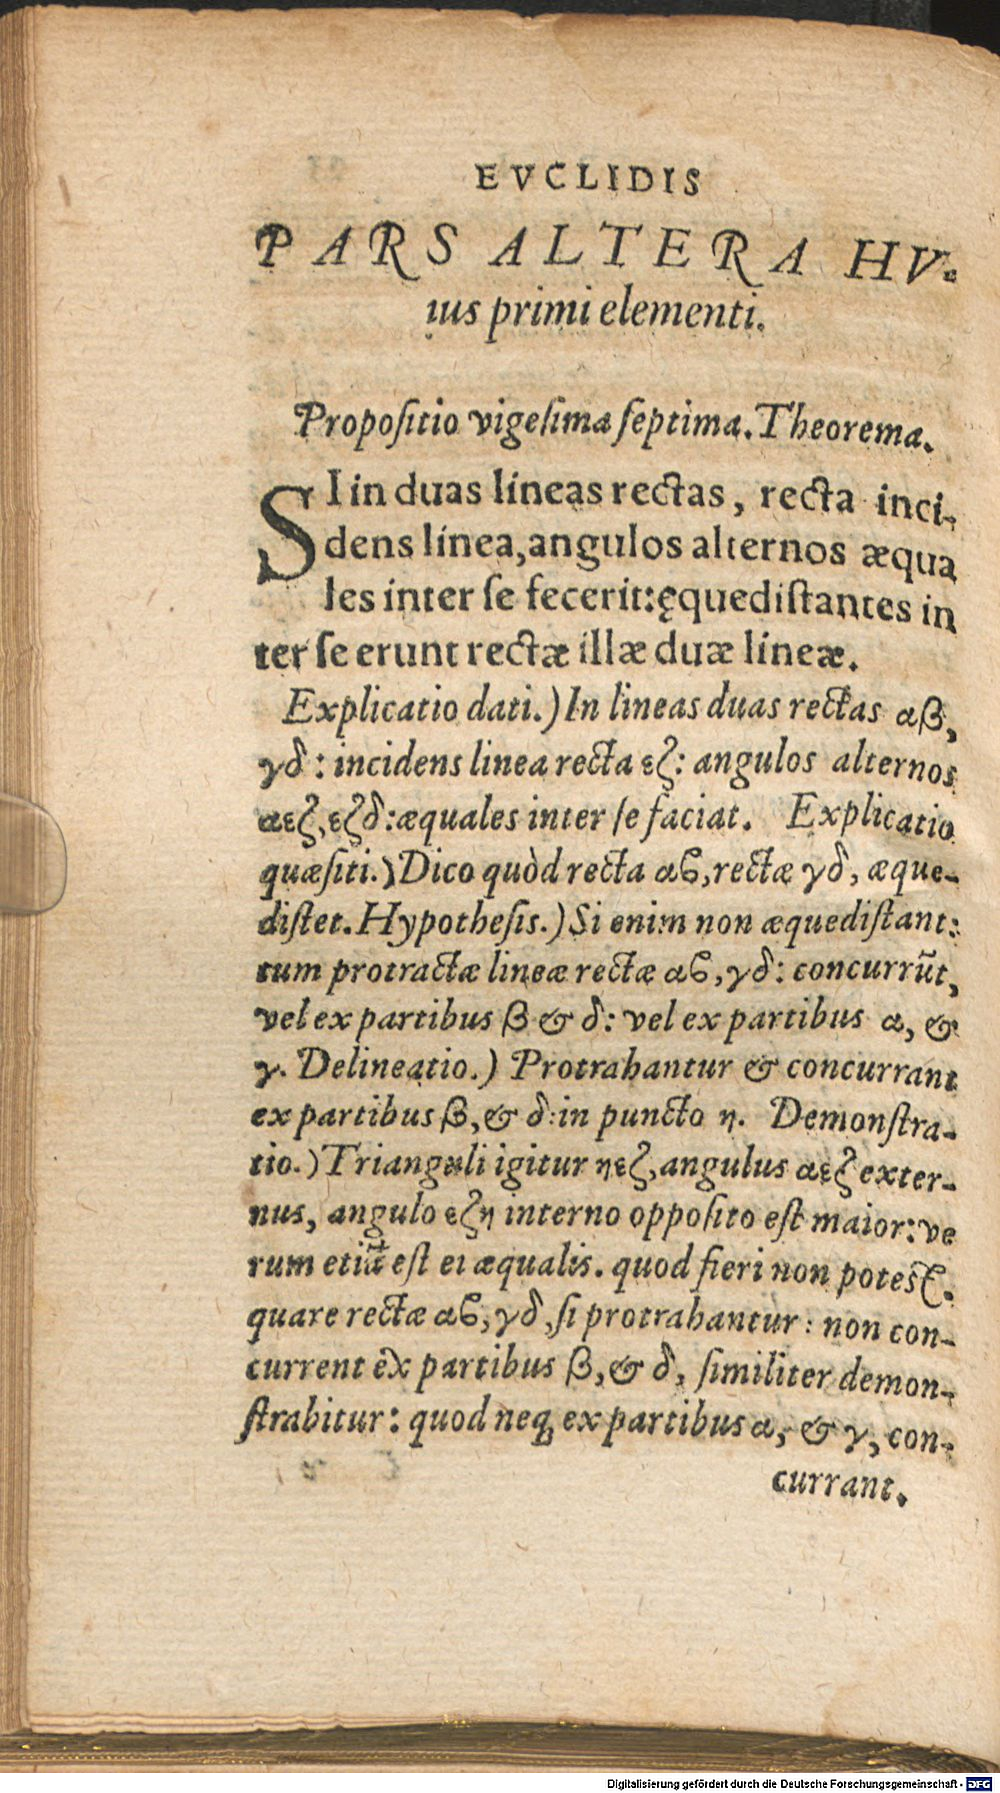 EVCLIDIS
PARS ALTERA HV-
ius primi elementi.
Propoſitio vigeſima ſeptima. Theorema.
SI in duas lineas rectas, recta inci-
dens linea, angulos alternos æqua
les inter ſe fecerit: ęquediſtantes in
ter ſe erunt rectæ illæ duæ lineæ.
Explicatio dati.) In lineas duas rectas αβ,
γδ: incidens linea recta εζ: angulos alternos
αεζ, εζδ: æquales inter ſe faciat. Explicatio
quæſiti.) Dico quòd recta αϐ, rectæ γδ, æque-
diſtet. Hypotheſis.) Si enim non æquediſtant:
tum protractæ lineæ rectæ αϐ, γδ: concurrũt,
vel ex partibus β & δ: vel ex partibus α, &
γ. Delineatio.) Protrahantur & concurrant
ex partibus β, & δ: in puncto η. Demonſtra-
tio.) Trianguli igitur ηεζ, angulus αεζ exter-
nus, angulo εζη interno oppoſito eſt maior: ve
rum etiã eſt ei æqualis. quod fieri non poteſt.
quare rectæ αϐ, γδ, ſi protrahantur: non con-
current ex partibus β, & δ, ſimiliter demon-
ſtrabitur: quod neq; ex partibus α, & γ, con-
currant.
Digitalisierung gefördert durch die Deutsche Forschungsgemeinschaft - DFG